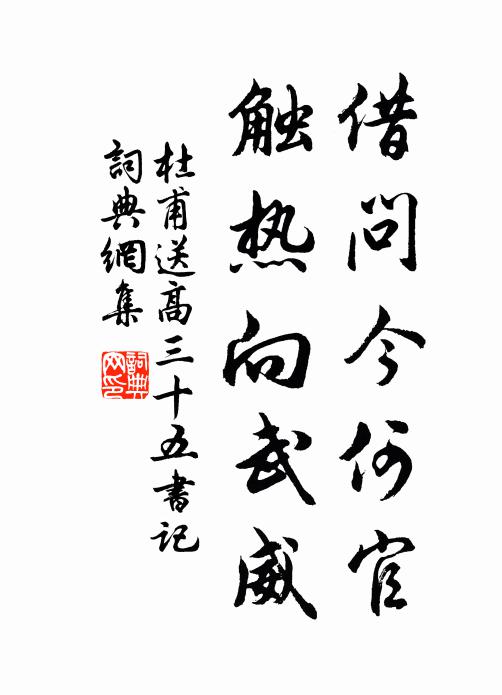 借问今何官
触热向武威
杜甫送高三十五書记
詞典網集
詞典网印